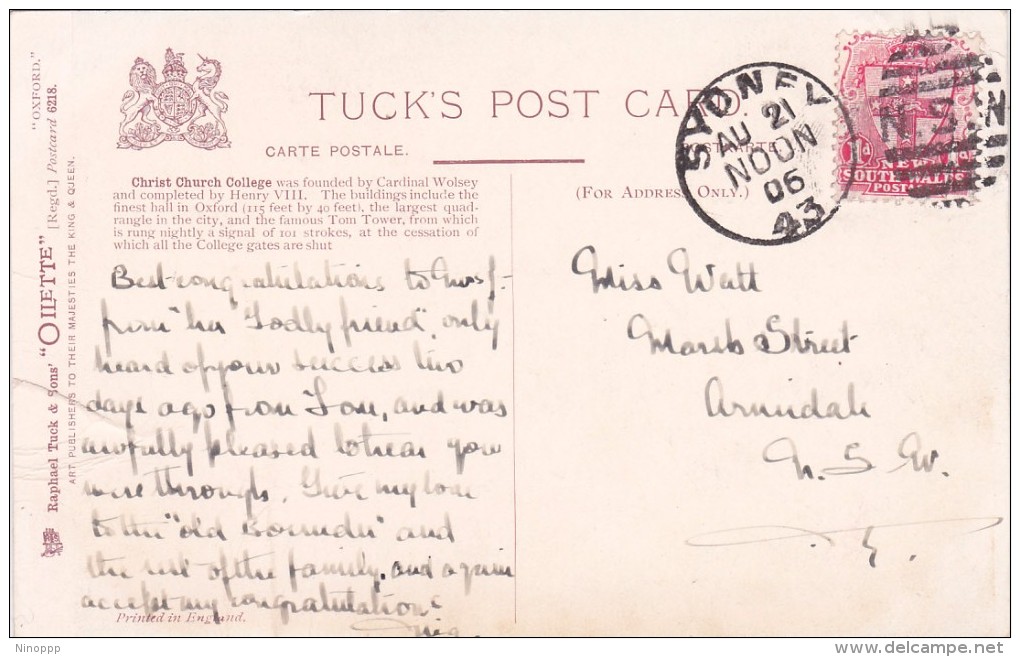 "OXFORD."
Raphael Tuck & Sons' "OILETTE" [Regd.] Postcard 6218.
ART PUBLISHERS TO THEIR MAJESTIES THE KING & QUEEN.
TUCK'S POST CARD
CARTE POSTALE.
(FOR ADDRESS ONLY.)
SYDNEY
AU 21
NOON
06
43
NEW
SOUTH WALES
POSTAGE
NSW
Christ Church College was founded by Cardinal Wolsey
and completed by Henry VIII. The buildings include the
finest hall in Oxford (115 feet by 40 feet), the largest quad-
rangle in the city, and the famous Tom Tower, from which
is rung nightly a signal of 101 strokes, at the cessation of
which all the College gates are shut
Best congratulations to
from her "Godly friend" only
heard of your success two
days ago from Lou, and was
awfully pleased to hear you
were through. Give my love
to the "old" and
the rest of the family. and again
accept my congratulations
Printed in England.
Miss Watt
Marsh Street
Armidale
N. S. W.
Ninoppp
www.delcampe.net